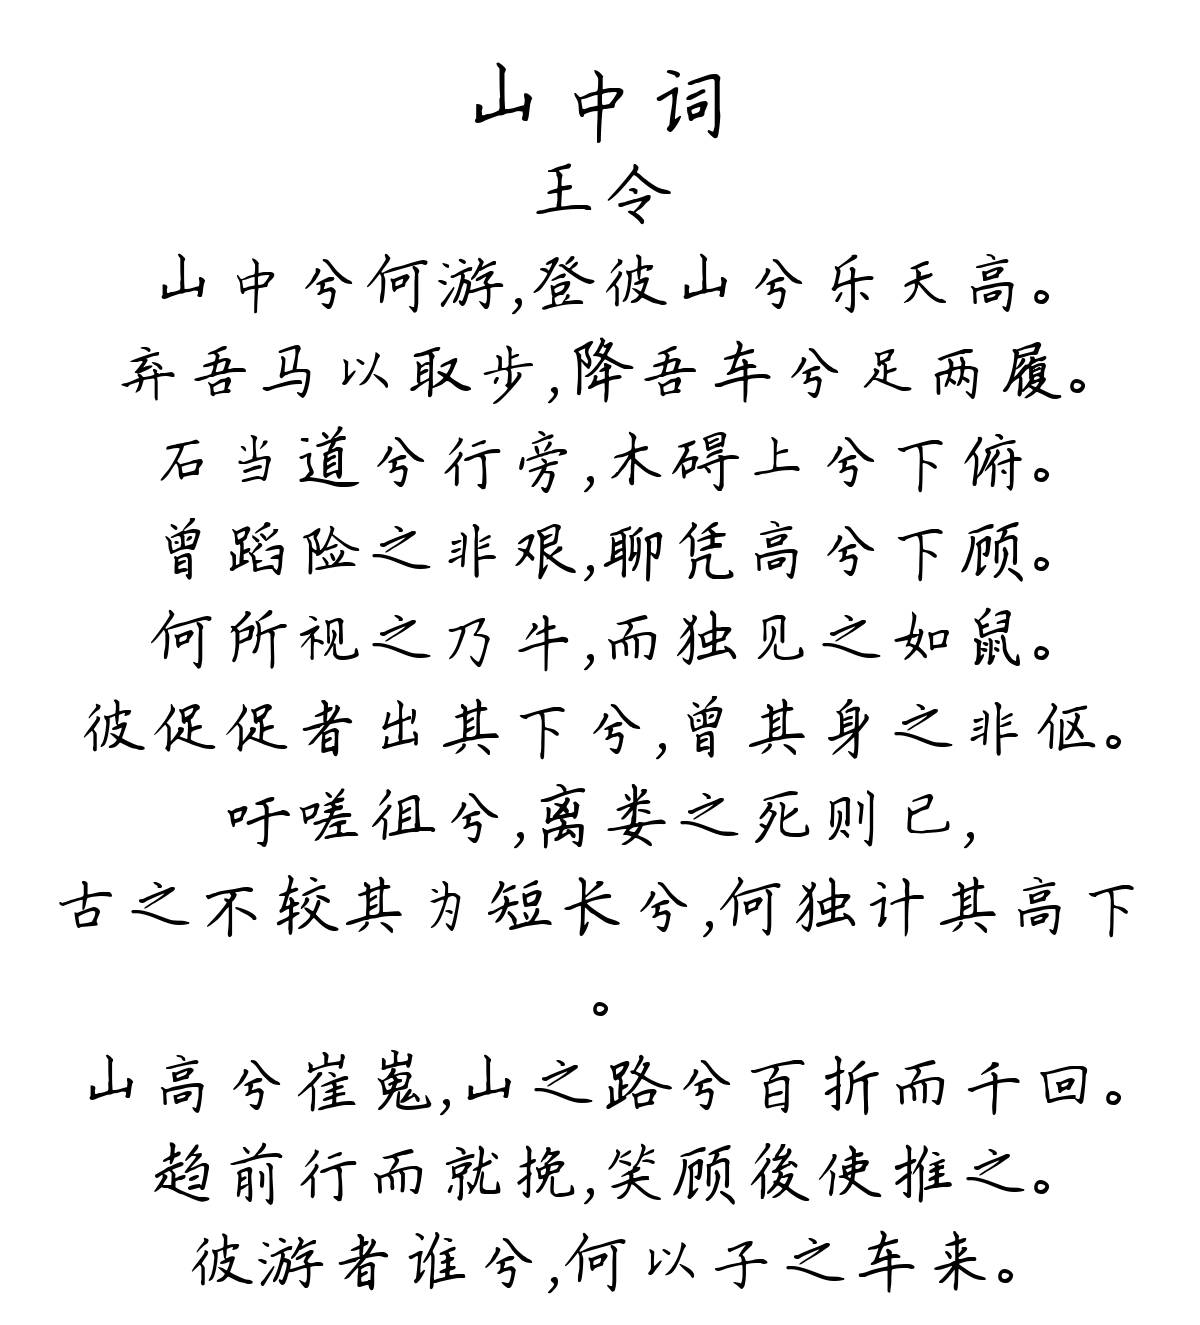 山中词
王令
山中兮何游,登彼山兮乐天高。
弃吾马以取步,降吾车兮足两履。
石当道兮行旁,木碍上兮下俯。
曾蹈险之非艰,聊凭高兮下顾。
何所视之乃牛,而独见之如鼠。
彼促促者出其下兮,曾其身之非伛。
吁嗟徂兮,离娄之死则已,
古之不较其为短长兮,何独计其高下
。
山高兮崔嵬,山之路兮百折而千回。
趋前行而就挽,笑顾後使推之。
彼游者谁兮,何以子之车来。